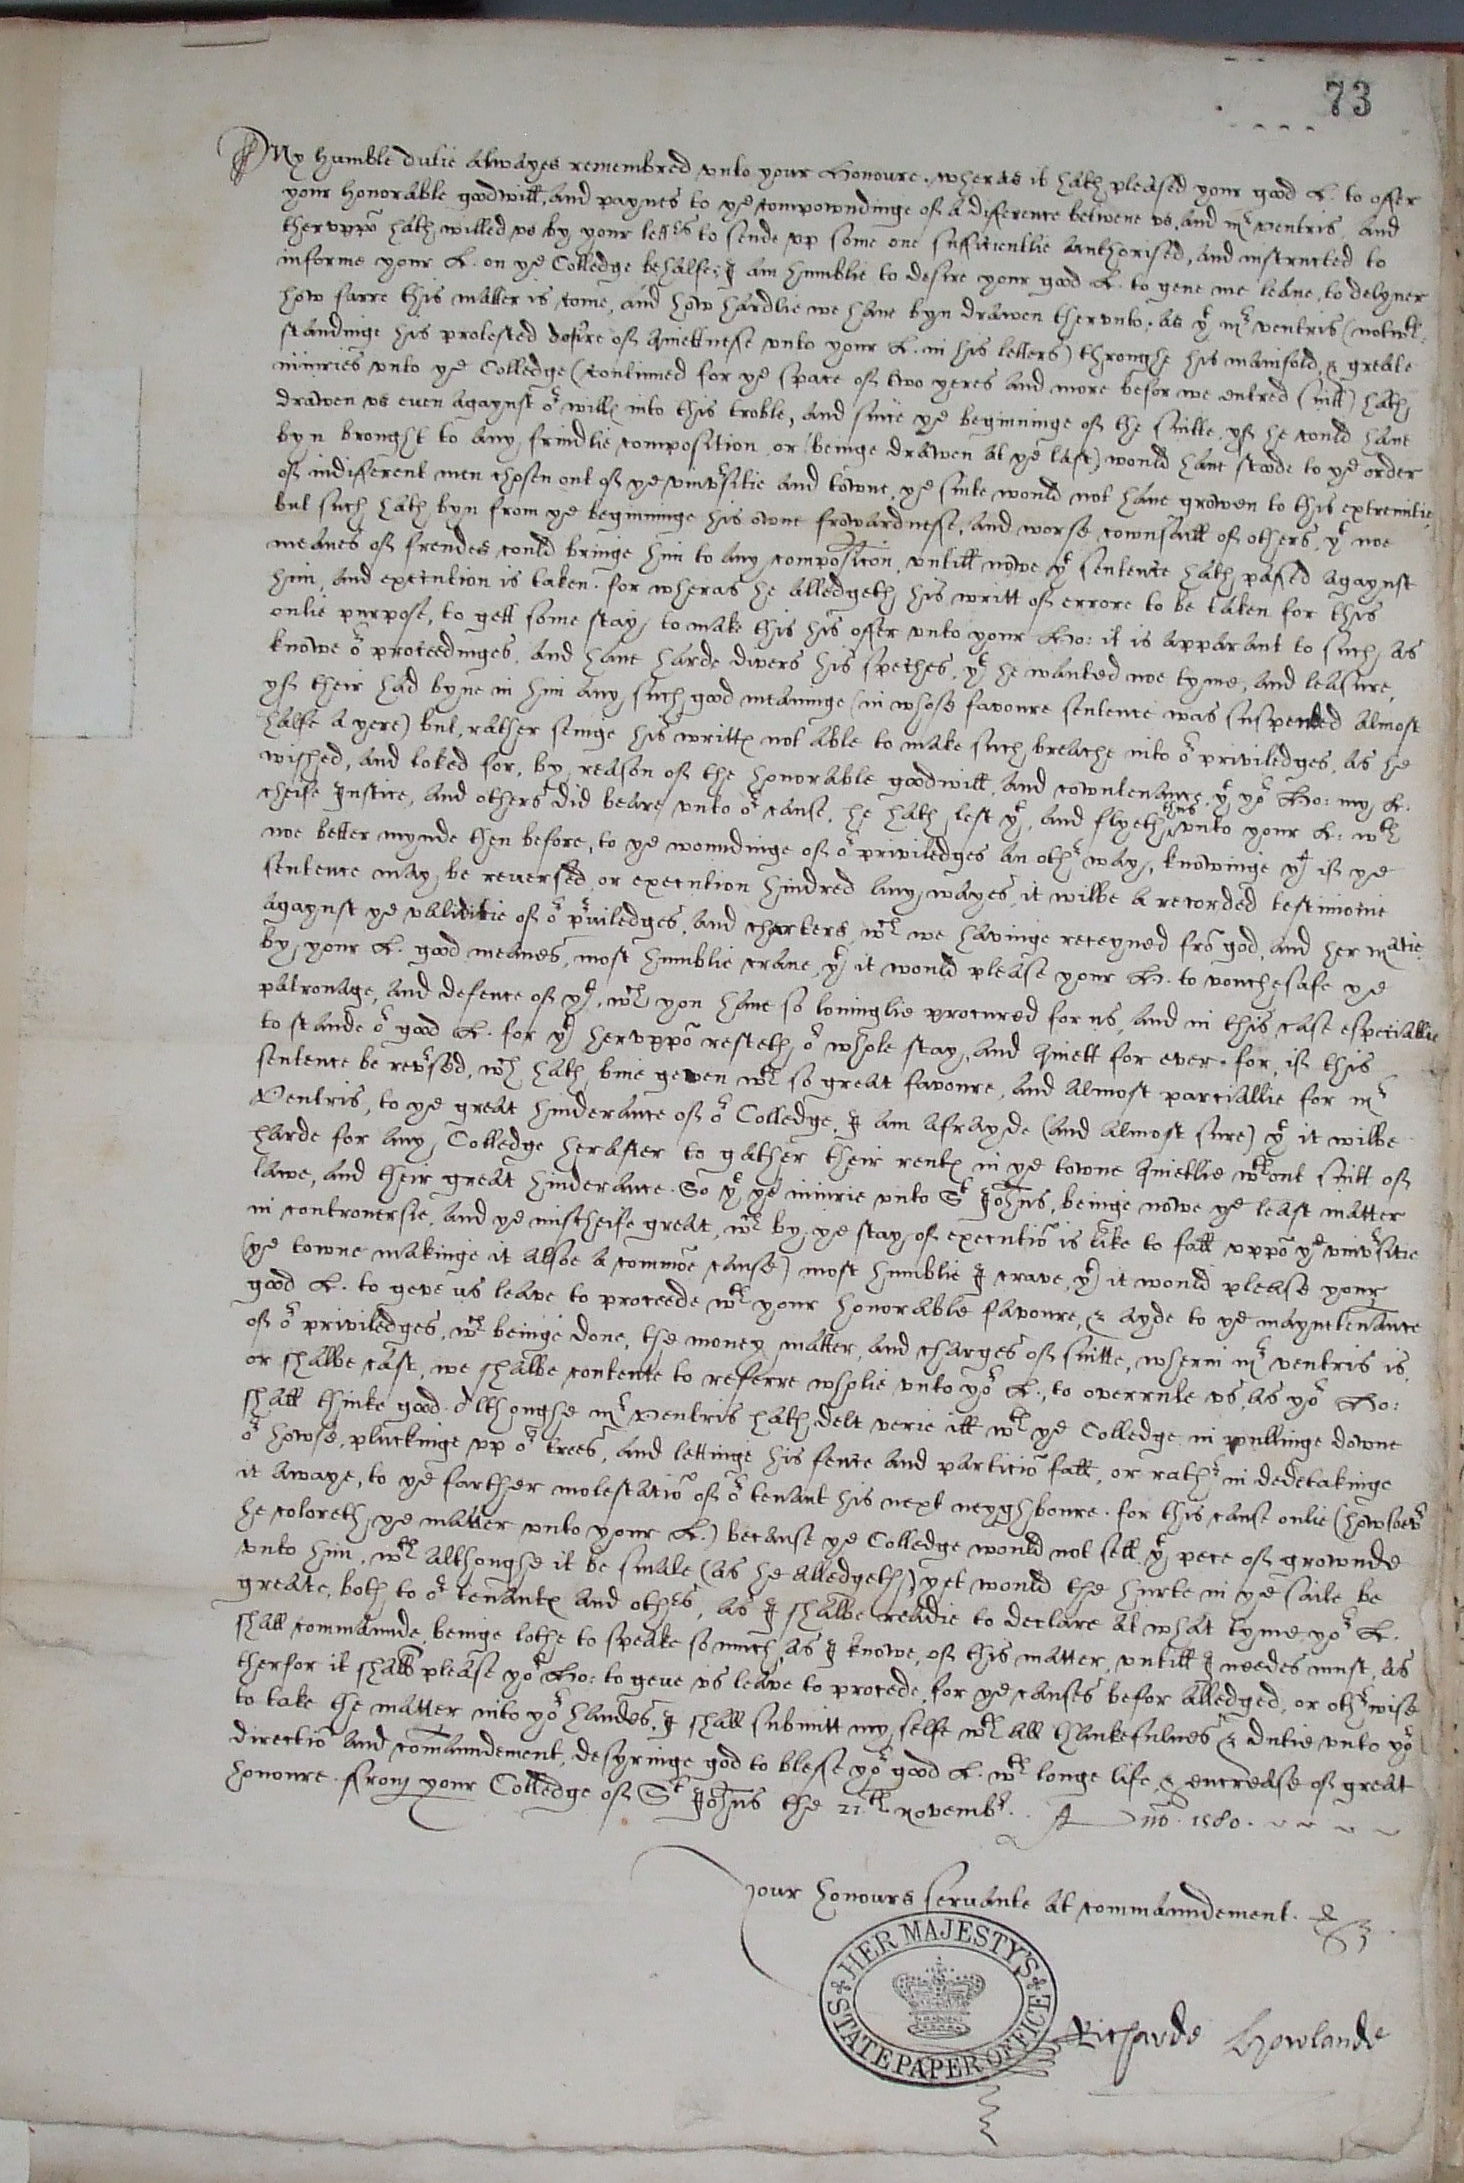 73
My humble dutie alwayes remembred vnto your Honoure. wheras it hath pleased your good L. to offer
your honorable goodwill, and paynes to ye compowndinge of a difference betwene vs, and mr ventris, and
theruppō hath willed vs by your letters to sende vp some one sufficientlie authorised, and instructed to
informe your L. on ye Colledge behalfe; I am humblie to desire your good L. to geue me leaue, to delyuer
how farre this matter is come, and how hardlie we haue byn drawen thervnto. As yt mr ventris (notwt-
standinge his protested desire of quiettnesse vnto your L. in his letters) throughe his manifold, & greate
iniuries vnto ye Colledge (continued for ye space of two yeres and more befor we entred suitt) hath
drawen vs euen agaynst or willes into this troble, and since ye beginninge of the suitte, yf he could haue
byn brought to any frindlie composition, or (beinge drawen at ye last) would haue stoode to ye order
of indifferent men chosen out of ye vniversitie and towne, ye sute would not haue growen to this extremitie,
but such hath byn from ye beginninge his owne frowardnesse, and worse cownsaill of others, yt noe
meanes of frendes could bringe him to any composicōn, vntill nowe yt sentence hath passed agaynst
him, and execution is taken. for wheras he alledgeth his writt of errore to be taken for this
onlie purpose, to gett some stay, to make this his offer vnto your Ho: it is apparant to such, as
knowe or proceedinges, and haue harde divers his speches, yt he wanted noe tyme, and leasure,
yf their had byne in him any such good meaninge (in whose favoure sentence was suspended almost
halfe a yere) but, rather seinge his writtes not able to make such breache into or priviledges, as he
wished, and loked for, by reason of the honorable goodwill, and cowntenance, yt yor Ho: my L.
cheife Iustice, and others did beare vnto or cause, he hath left yt, and flyeth thus vnto your L: wt
noe better mynde then before, to ye woundinge of or priviledges an othr way, knowinge yt if ye
sentence may be reuersed, or execution hindred any wayes, it wilbe a recorded testimonie
agaynst ye validitie of or pruiledges, and charters, wch we havinge receyued frō god, and her matie
by your L. good meanes, most humblie craue, yt it would please your Ho. to vouchesafe ye
patronage, and defence of yt, wch you haue so louinglie procured for us, and in this case especiallie
to stande or good L. for yt heruppō resteth or whole stay, and quiett for ever. for, if this
sentence be reversed, wch hath bine geven wt so great favoure, and almost parciallie for mr
Ventris, to ye great hinderance of or Colledge, I am afrayde (and almost sure) yt it wilbe
harde for any Colledge herafter to gather their rentes in ye towne quietlie wtout suitt of
lawe, and their great hinderance. So yt ye iniurie vnto St Iohns, beinge nowe ye least matter
in controuersie, and ye mischeife great, wch by ye stay of executiō is like to fall vppō ye vniversitie
(ye towne makinge it allsoe a commōe cause) most humblie I crave, yt it would please your
good L. to geve us leave to proceede wt your honorable favoure, & ayde to ye mayntenance
of or priviledges, wch beinge done, the money matter, and charges of suitte, wherin mr ventris is,
or shalbe cast, we shalbe contente to referre wholie vnto yor L., to overrule vs, as yor Ho:
shall thinke good. Althoughe mr Ventris hath delt verie ill wt ye Colledge in pullinge downe
or howse, pluckinge vp or trees, and lettinge his fence and particiō fall, or rathr in dedetakinge
it awaye, to ye farther molestatiō of or tenant his next neyghboure. for this cause onlie (howsoevr
he coloreth ye matter vnto your L.) because ye Colledge would not sell yt pece of grownde
vnto him, wch althoughe it be smale (as he alledgeth) yet would the hurte in ye saile be
greate, both to or tenantes and others, as I shalbe readie to declare at what tyme yor L.
shall commaunde, beinge lothe to speake so much, as I knowe, of this matter, vntill I needes must, as
therfor it shall please yor Ho: to geue vs leave to procede, for ye causes befor alledged, or othrwise
to take the matter into yor handes, I shall submitt my selfe wt all thankefulnes & dutie vnto yor
directiō and comaundement, desyringe god to blesse yor good L. wt longe life & encrease of great
honoure. from your Colledge of St Iohns the 21th Novembr. Anno. 1580.
your honours servante at commaundement.
HER MAJESTY'S STATE PAPER OFFICE
Richarde Howlande